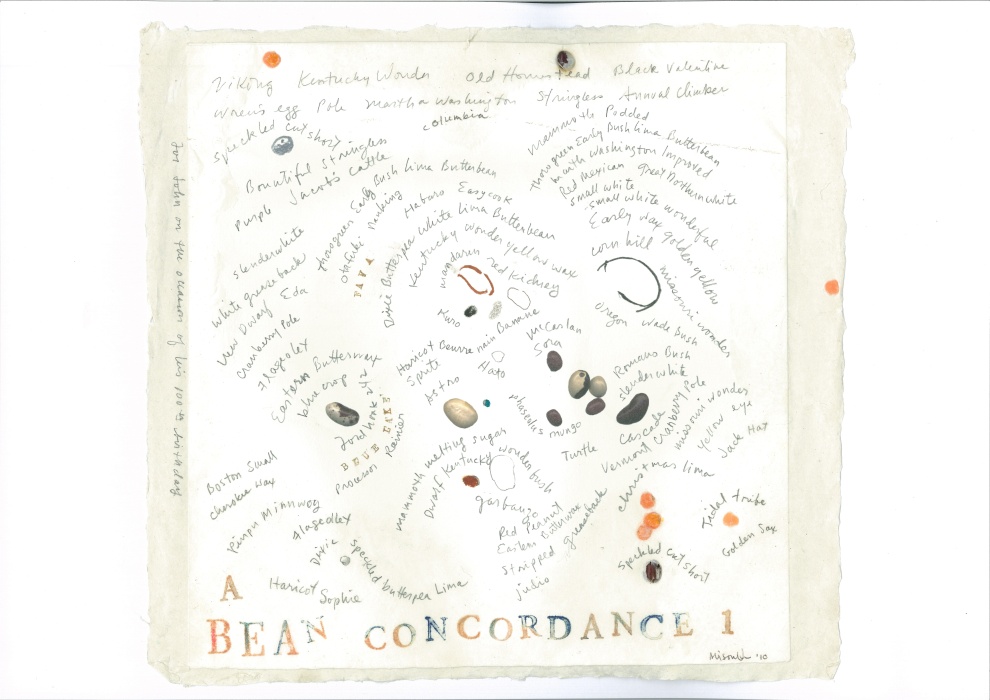 Viking Kentucky Wonder Old Homestead Black Valentine
Wren's egg Pole Martha Washington Stringless Annual Climber
Columbia
speckled cut short
Bountiful Stringless
Jacob's Cattle
Purple
Mammoth Podded
Thorogreen Early Bush Lima Butterbean
Martha Washington Improved
Red Mexican Great Northern White
small white
small white wonderful
Early day golden yellow
corn hill
missouri wonder
Oregon wade bush
Thorogreen Early Bush Lima Butterbean
Otafuki nanking
Haburo Easycook
FAVA
Dixie Butterpea White Lima Butterbean
Kentucky wonder yellow wax
mandarin red kidney
slenderwhite
White greaseback
New Dwarf Eda
Cranberry Pole
Flageolex
Eastern Butterwax
blue crop
BLUE LAKE
Processor Rainier
Haricot Oeuvre nain Banane
Sprite
Astro
Hato
McCaslan
Sora
phaseulus mungo
Turtle
Romano Bush
slenderwhite
Cascade
Cranberry Pole
Vermont
missouri wonder
yellow eye
Jack Hat
Christmas lima
Tidal tribe
Golden Sax
speckled cut short
mammoth melting sugar
Dwarf Kentucky wonder bush
garbanzo
Red Peanut
Eastern Butterwax
stripped greaseback
julio
Boston Small
cherokee wax
Pinpon Minnwog
Flagedlex
Dixie Speckled butterpea Lima
Haricot Sophie
for John on the occasion of his 100th birthday
A
BEAN CONCORDANCE 1
'10